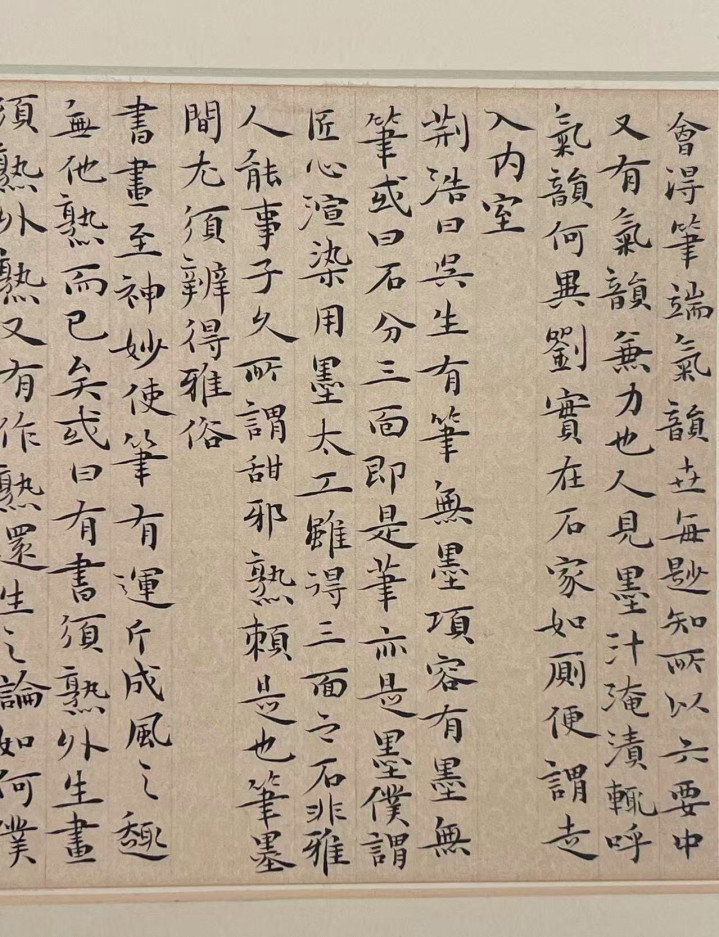 會得筆端氣韻世每尟知所以六要中
又有氣韻兼力也人見墨汁淹漬輒呼
氣韻何異劉實在石家如厠便謂走
入内室
荆浩曰吳生有筆無墨項容有墨無
筆或曰石分三面即是筆亦是墨僕謂
匠心渲染用墨太工雖得三面之石非雅
人能事子久所謂甜邪熟賴是也筆墨
間尤須辨得雅俗
書畫至神妙使筆有運斤成風之趣
無他熟而已矣或曰有書須熟外生畫
須熟外熟又有作熟還生之論如何僕